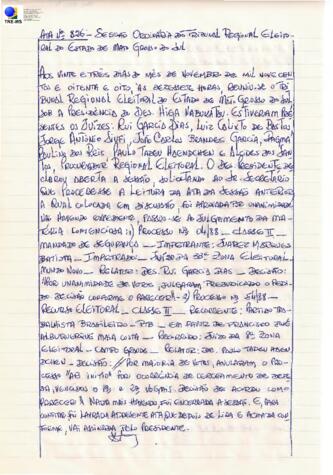 TRE-MS
ATA Nº 826 - SESSÃO ORDINÁRIA DO TRIBUNAL REGIONAL ELEITO-
RAL DO ESTADO DE MATO GROSSO DO SUL
AOS VINTE E TRÊS DIAS DO MÊS DE NOVEMBRO DE MIL NOVECEN-
TOS E OITENTA E OITO, ÀS DEZESSETE HORAS, REUNIU-SE O TRI-
BUNAL REGIONAL ELEITORAL DO ESTADO DE MATO GROSSO DO SUL
SOB A PRESIDÊNCIA DO DES. HIGA NABUKATSU. ESTIVERAM PRE-
SENTES OS JUÍZES: RUI GARCIA DIAS, LUIZ CALIXTO DE BASTOS,
JORGE ANTÔNIO SIUFI, JOÃO CARLOS BRANDES GARCIA, DAGMA
PAULINO DOS REIS, PAULO TADEU HAENDCHEN E ALCIDES DOS SAN-
TOS, PROCURADOR REGIONAL ELEITORAL. O DES. PRESIDENTE DE-
CLAROU ABERTA A SESSÃO, SOLICITANDO AO SR. SECRETÁRIO
QUE PROCEDESSE A LEITURA DA ATA DA SESSÃO ANTERIOR
A QUAL COLOCADA EM DISCUSSÃO, FOI APROVADA POR UNANIMIDADE.
NÃO HAVENDO EXPEDIENTE, PASSOU-SE AO JULGAMENTO DA MA-
TÉRIA: 1) PROCESSO Nº 04/88 - CLASSE II -
MANDADO DE SEGURANÇA - IMPETRANTE: JUAREZ MARQUES
BATISTA - IMPETRADO: JUÍZO DA 33ª ZONA ELEITORAL -
MUNDO NOVO - RELATOR: DES. RUI GARCIA DIAS - DECISÃO:
"POR UNANIMIDADE DE VOTOS, JULGARAM PREJUDICADO O PEDI-
DO. DECISÃO CONFORME O PARECER". 2) PROCESSO Nº 54/88 -
RECURSO ELEITORAL - CLASSE - RECORRENTE: PARTIDO TRA-
BALHISTA BRASILEIRO - PTB - EM FAVOR DE FRANCISCO JOSÉ
ALBUQUERQUE MAIA COSTA - RECORRIDO: JUÍZO DA 8ª ZONA
ELEITORAL - CAMPO GRANDE - RELATOR: DR. PAULO TADEU HAEN-
DCHEN - DECISÃO: "POR MAIORIA DE VOTOS, ANULARAM O PRO-
CESSO "AB INITIO" POR OCORRÊNCIA DE CERCEAMENTO DE DEFE-
SA, VENCIDOS O 1º E 2º VOGAIS. DECISÃO DE ACORDO COM O
PARECER". NADA MAIS HAVENDO, FOI ENCERRADA A SESSÃO. E, PARA
CONSTAR FOI LAVRADA A PRESENTE ATA QUE DEPOIS DE LIDA E ACHADA CON-
FORME, VAI ASSINADA PELO PRESIDENTE.